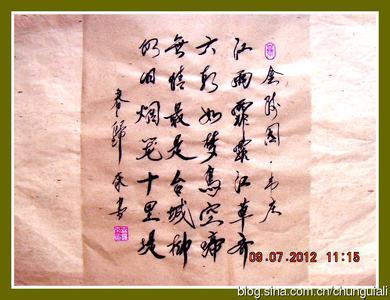 金陵图·韦庄
江雨霏霏江草齐
六朝如梦鸟空啼
無情最是台城柳
仍旧烟笼十里堤
春歸来书
09.07.2012 11:15
blog.sina.com.cn/chunguilai